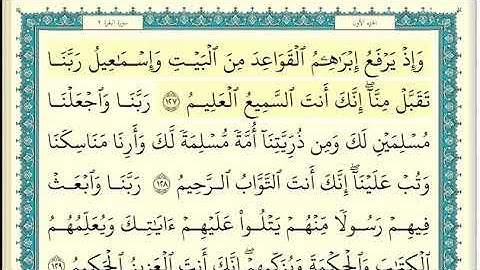 الجزء الأول
سورة البقرة ٢
وَإِذْ يَرْفَعُ إِبْرَٰهِـۧمُ ٱلْقَوَاعِدَ مِنَ ٱلْبَيْتِ وَإِسْمَـٰعِيلُ رَبَّنَا
تَقَبَّلْ مِنَّآ ۖ إِنَّكَ أَنتَ ٱلسَّمِيعُ ٱلْعَلِيمُ ١٢٧ رَبَّنَا وَٱجْعَلْنَا
مُسْلِمَيْنِ لَكَ وَمِن ذُرِّيَّتِنَآ أُمَّةً مُّسْلِمَةً لَّكَ وَأَرِنَا مَنَاسِكَنَا
وَتُبْ عَلَيْنَآ ۖ إِنَّكَ أَنتَ ٱلتَّوَّابُ ٱلرَّحِيمُ ١٢٨ رَبَّنَا وَٱبْعَثْ
فِيهِمْ رَسُولًا مِّنْهُمْ يَتْلُوا۟ عَلَيْهِمْ ءَايَـٰتِكَ وَيُعَلِّمُهُمُ
ٱلْكِتَـٰبَ وَٱلْحِكْمَةَ وَيُزَكِّيهِمْ ۚ إِنَّكَ أَنتَ ٱلْعَزِيزُ ٱلْحَكِيمُ ١٢٩